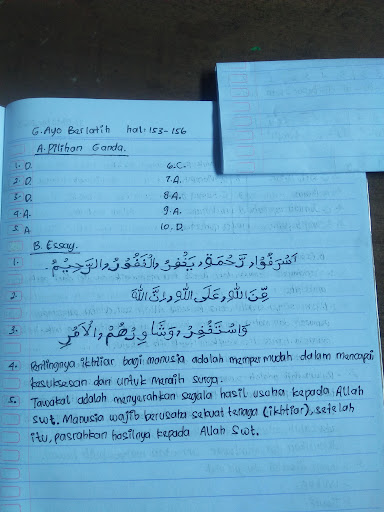 G. Ayo Berlatih hal: 153-156
A. Pilihan Ganda.
1. D. 6. C.
2. D. 7. A.
3. D 8. A.
4. A. 9. A.
5. A 10. D.
B. Essay.
1. اَسْرَفُوْا، رَّحْمَةِ، يَغْفِرُ، الْغَفُوْرُ، الرَّحِيْمُ.
2. مِّنَ اللّٰهِ، عَلَى اللّٰهِ، اِنَّ اللّٰهَ
3. وَاسْتَغْفِرْ، وَشَاوِرْهُمْ، الْاَمْرِ
4. Pentingnya ikhtiar bagi manusia adalah mempermudah dalam mencapai
kesuksesan dan untuk meraih surga.
5. Tawakal adalah menyerahkan segala hasil usaha kepada Allah
swt. Manusia wajib berusaha sekuat tenaga (ikhtiar), setelah
itu, pasrahkan hasilnya kepada Allah Swt.